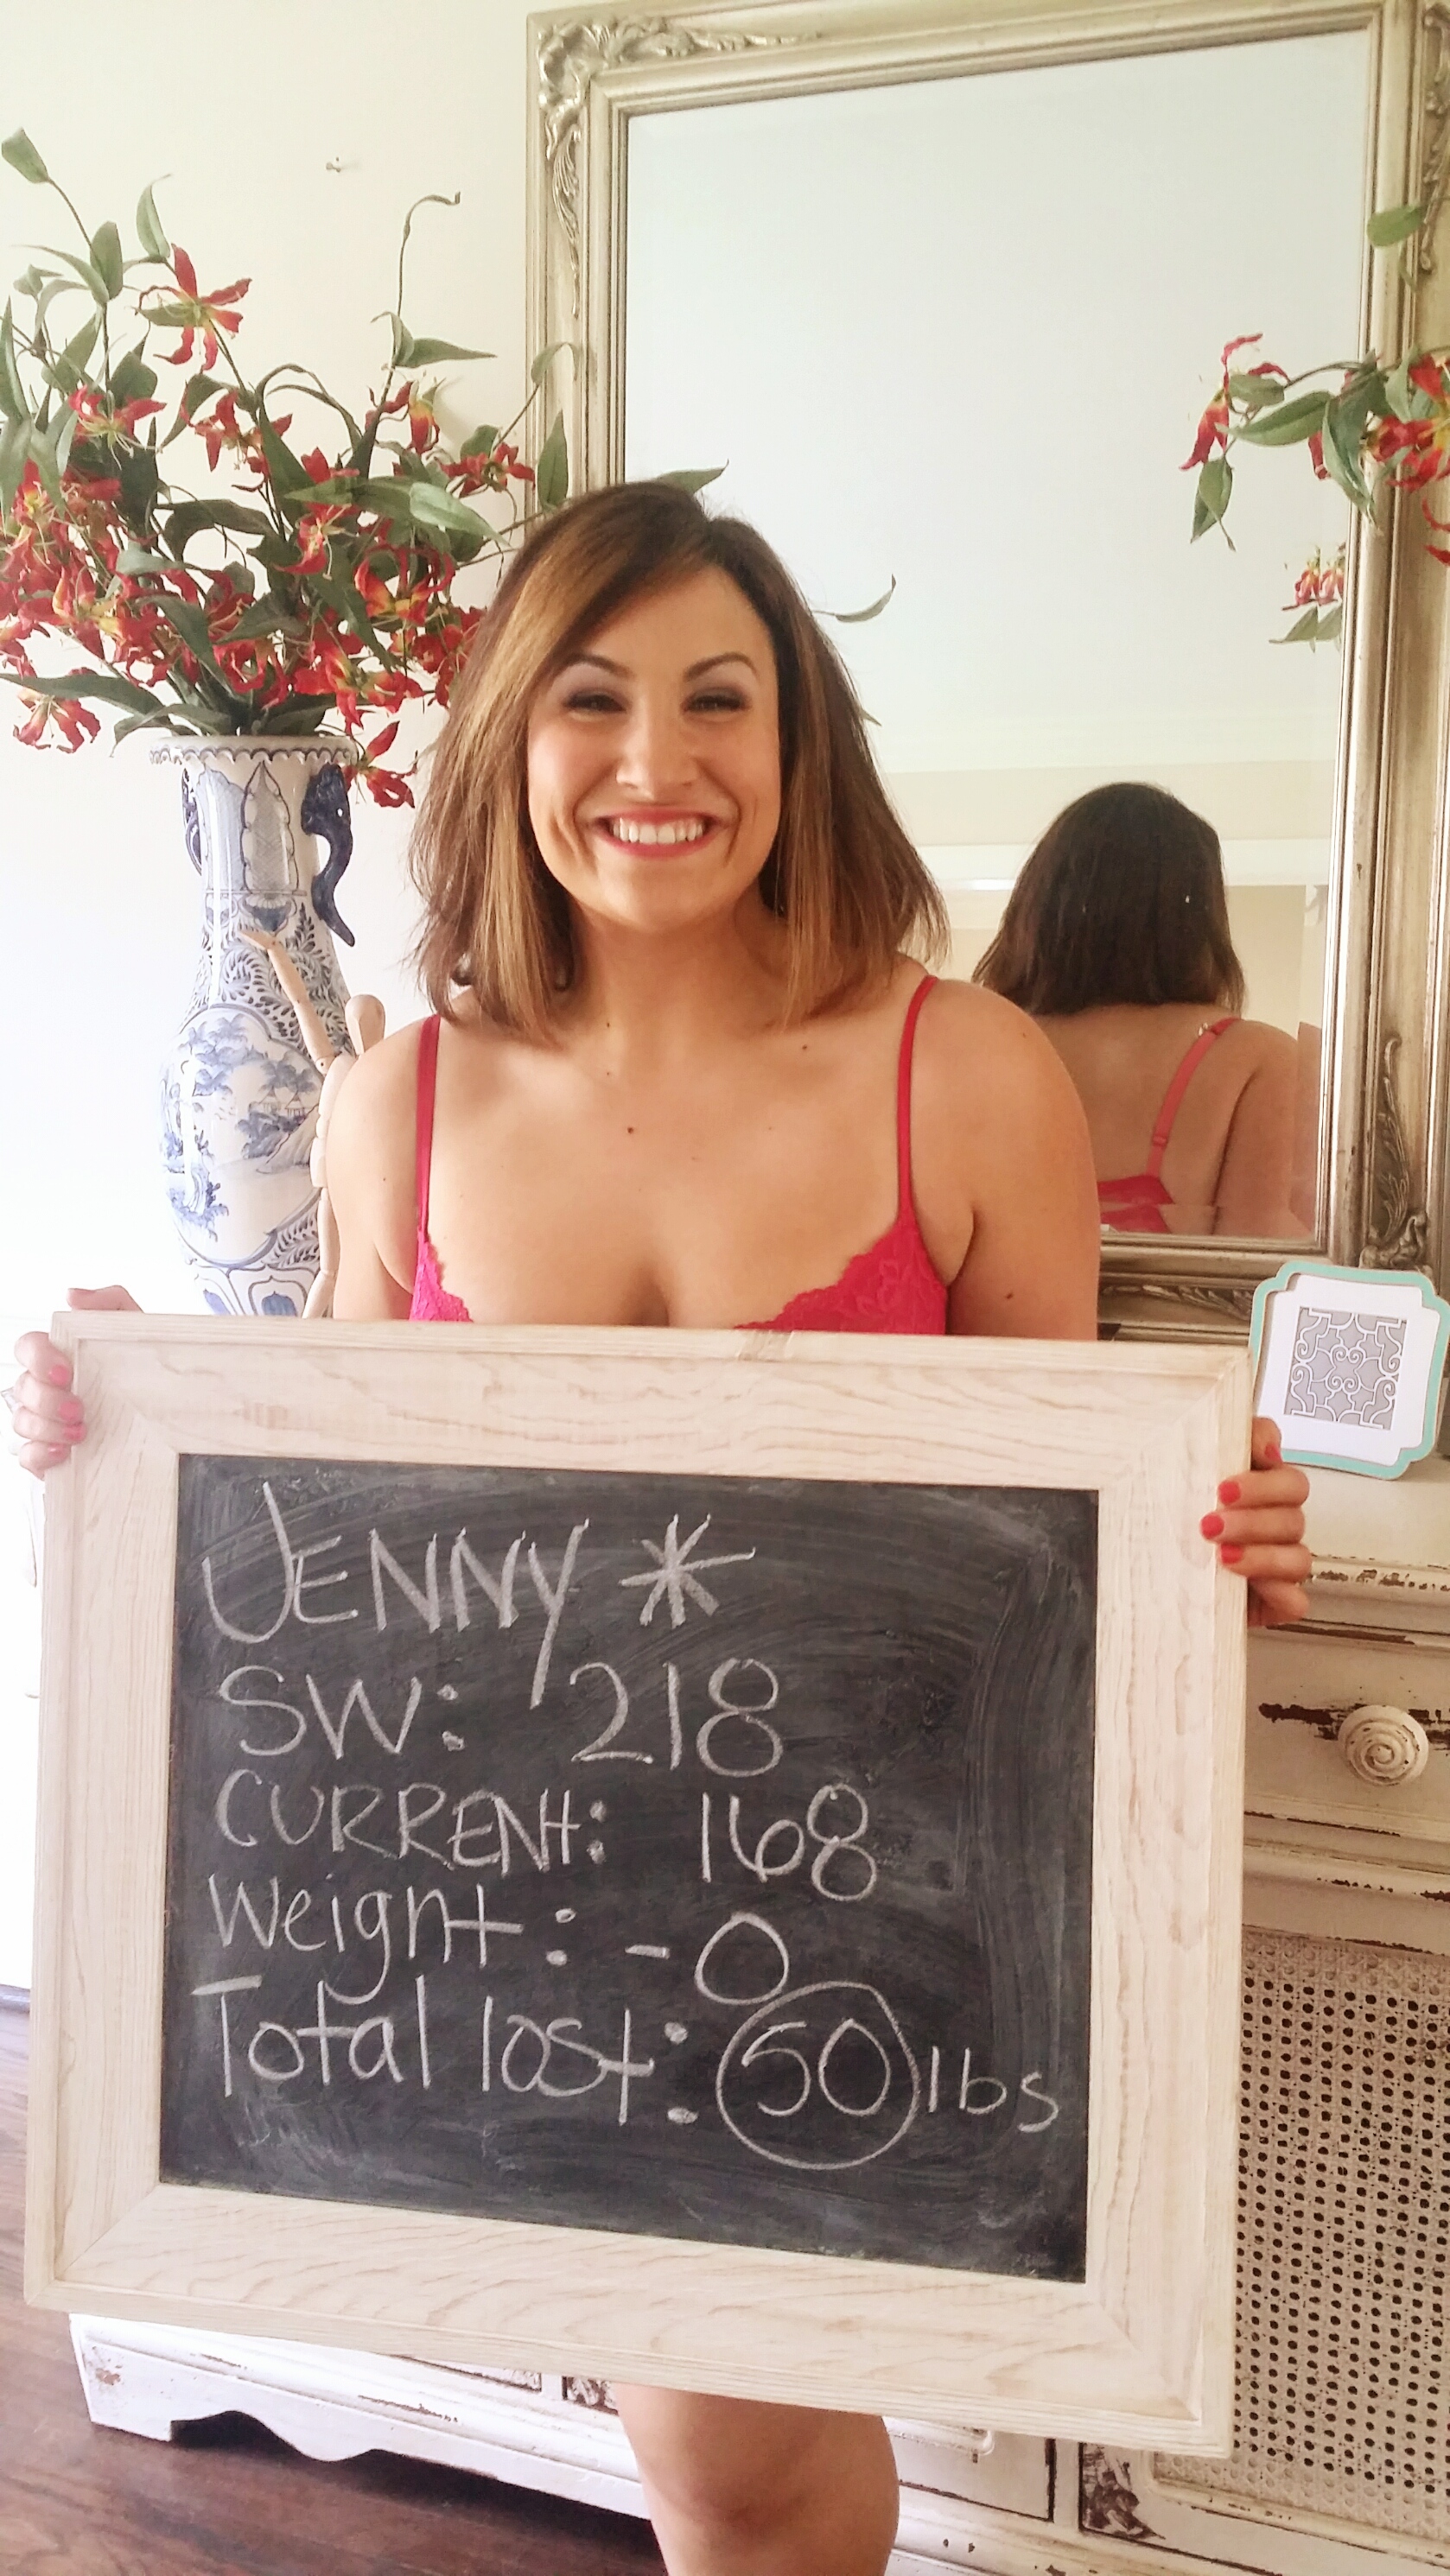 JENNY *
SW: 218
CURRENT: 168
Weight: -0
Total lost: 50 lbs